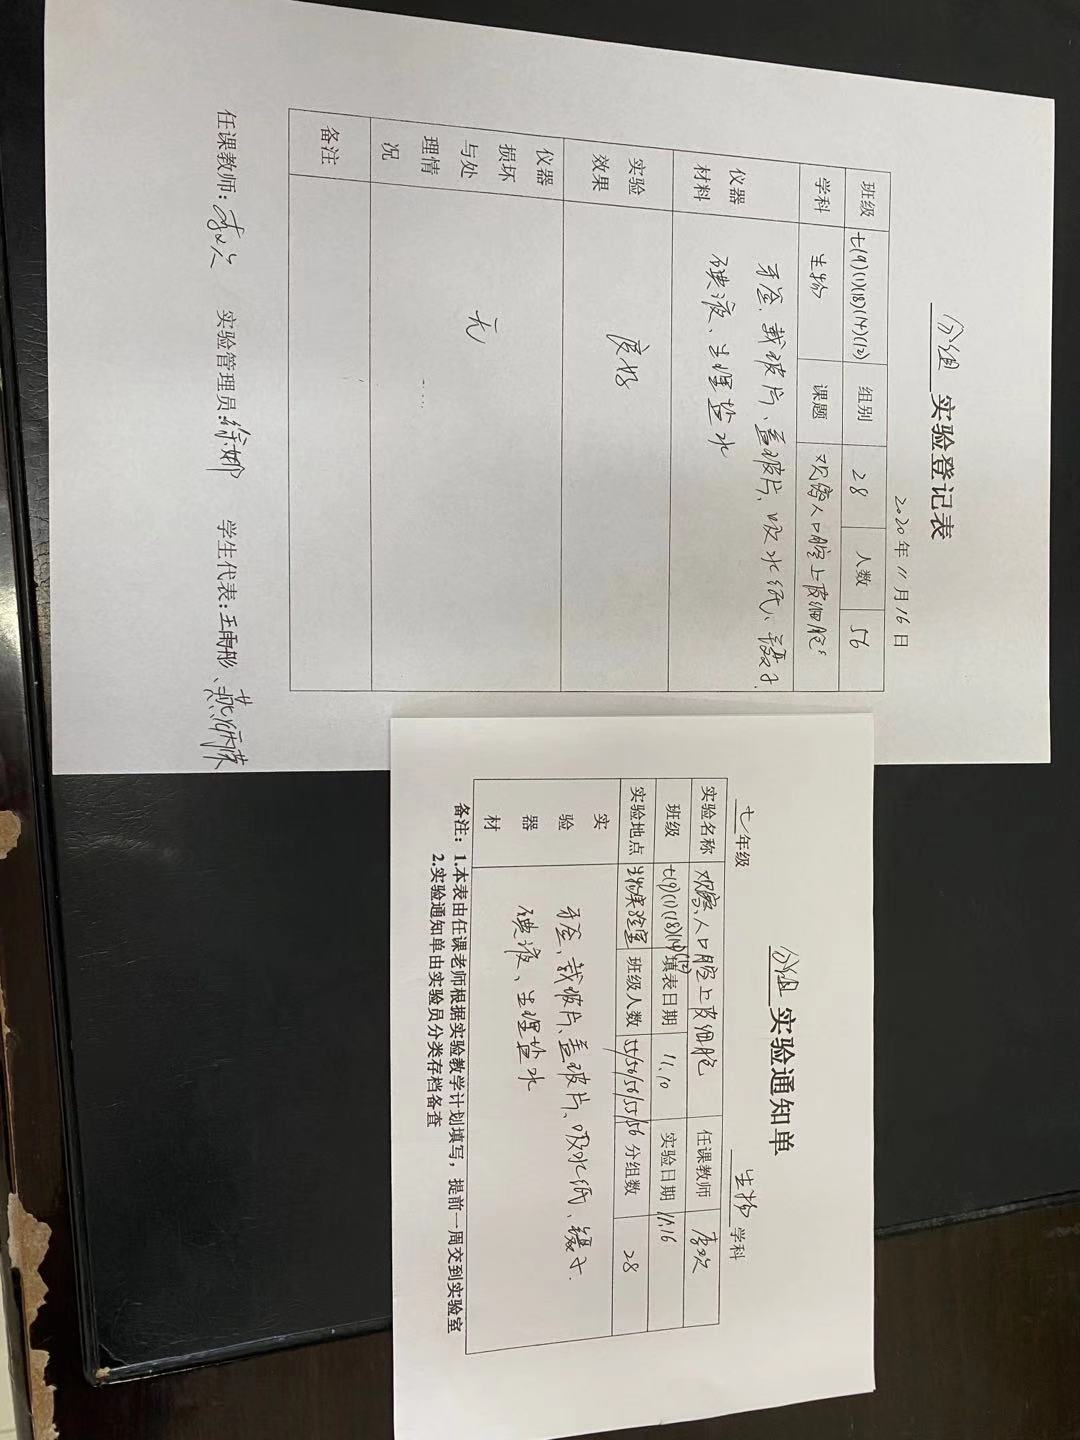 分组 实验登记表
2020年11月16日
班级 七(9)(1)(18)(14)(12) 组别 28 人数 56
学科 生物 课题 观察人口腔上皮细胞
仪器材料 牙签、载玻片、盖玻片、吸水纸、镊子.
碘液、生理盐水
实验效果 良好
仪器损坏与处理情况 无
备注
任课教师: 李欢 实验管理员: 徐娜 学生代表: 王雨彤、
分组 实验通知单
七年级 生物 学科
实验名称 观察人口腔上皮细胞 任课教师 李欢
班级 七(9)(1)(18)(14)(12) 填表日期 11.10 实验日期 11.16
实验地点 生物实验室 班级人数 55/56/56/55/56 分组数 28
实验器材 牙签、载玻片、盖玻片、吸水纸、镊子.
碘液、生理盐水
备注：1.本表由任课老师根据实验教学计划填写，提前一周交到实验室
2.实验通知单由实验员分类存档备查